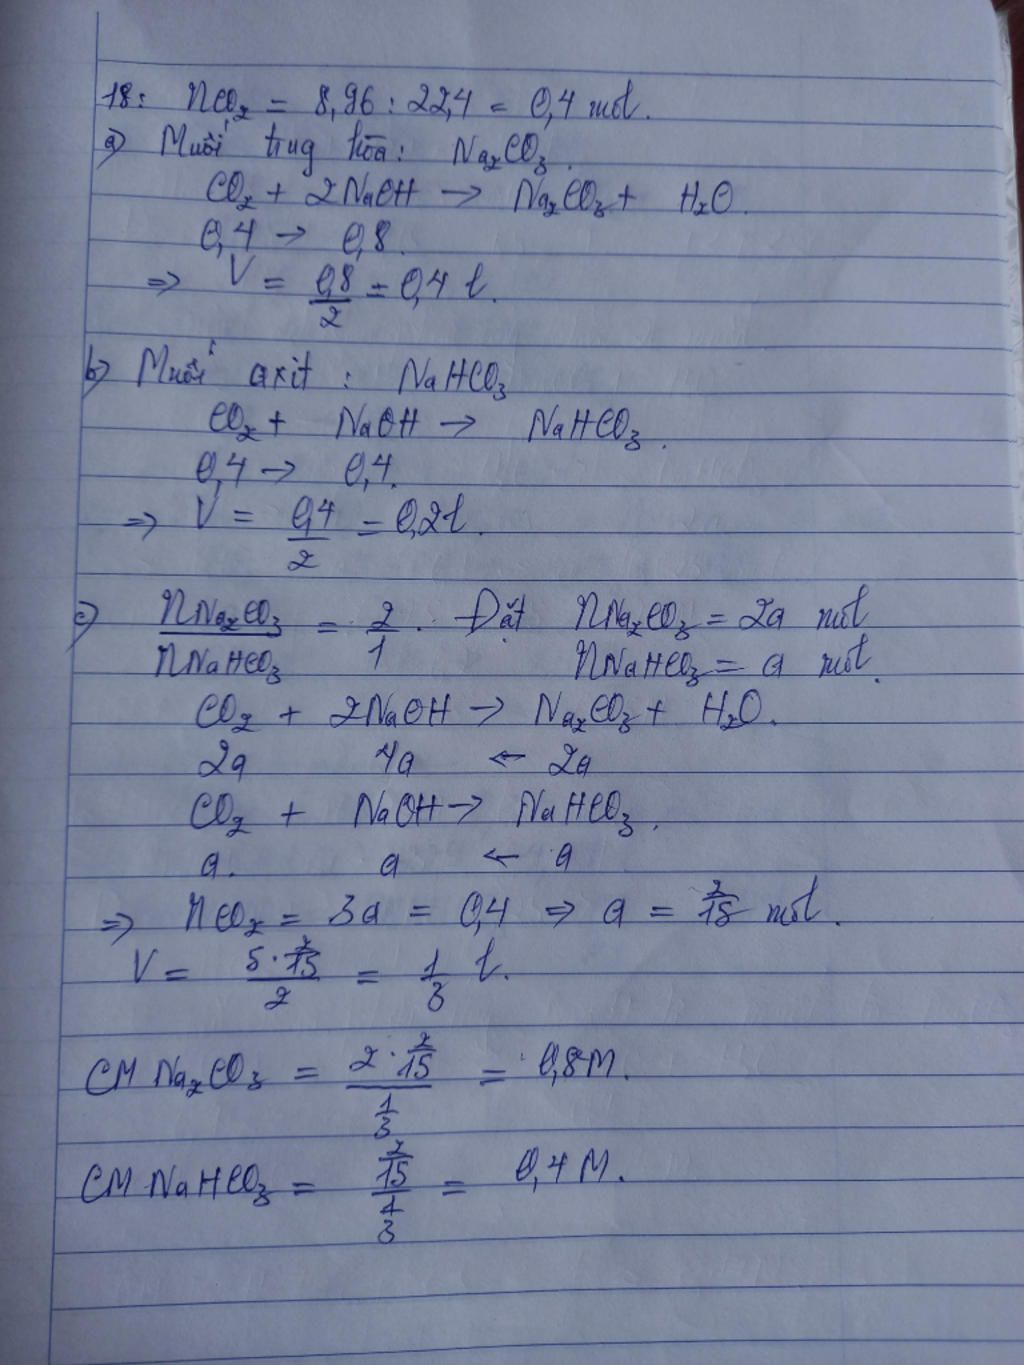 18: nCO₂ = 8,96 : 22,4 = 0,4 mol.
a) Muối trug hòa: Na₂CO₃.
CO₂ + 2NaOH → Na₂CO₃ + H₂O.
0,4 → 0,8.
⇒ V = 0,8/2 = 0,4 l.
b) Muối axit : NaHCO₃
CO₂ + NaOH → NaHCO₃.
0,4 → 0,4.
⇒ V = 0,4/2 = 0,2l.
c) nNa₂CO₃/nNaHCO₃ = 2/1. Đặt nNa₂CO₃ = 2a mol
nNaHCO₃ = a mol.
CO₂ + 2NaOH → Na₂CO₃ + H₂O.
2a 4a ← 2a
CO₂ + NaOH → NaHCO₃.
a. a ← a
⇒ nCO₂ = 3a = 0,4 ⇒ a = 2/15 mol.
V = (5 · 2/15)/2 = 1/3 l.
CM Na₂CO₃ = (2 · 2/15)/(1/3) = 0,8M.
CM NaHCO₃ = (2/15)/(1/3) = 0,4 M.